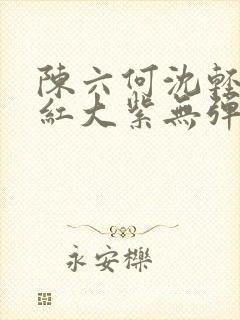 陳六何沈輕
紅大紫無彈
永安櫟